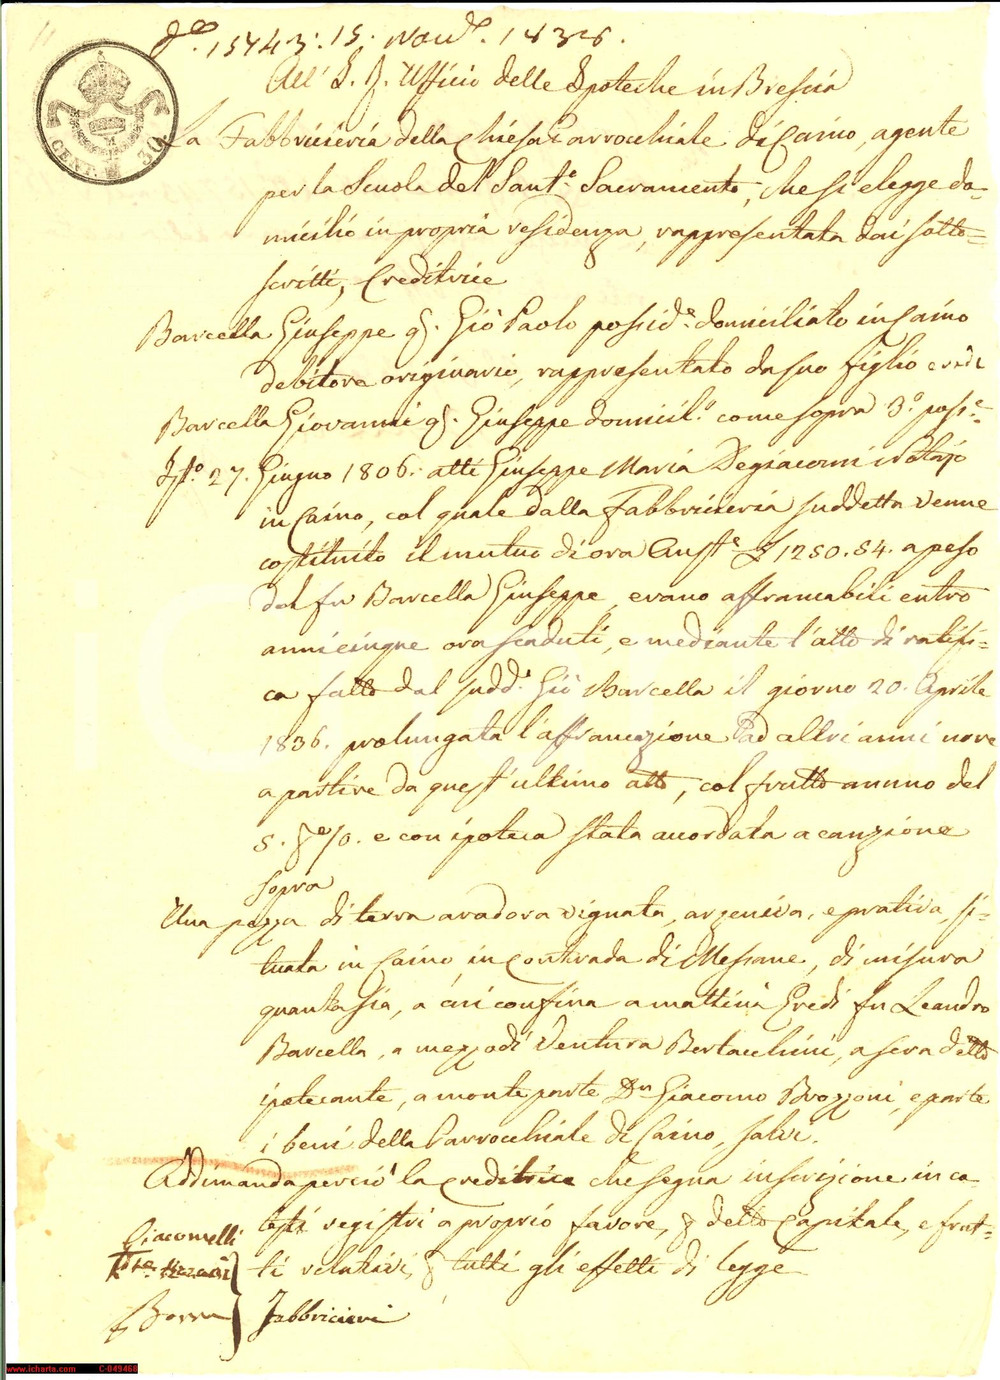 N.° 15743. 15. Nov. 1836.
CENT. 30
All' I. R. Ufficio delle Ipoteche in Brescia
La Fabbricieria della Chiesa Parrocchiale di Caino, agente
per la Scuola del Sant.° Sacramento, che si elegge do-
micilio in propria residenza, rappresentata dai sotto=
scritti, Creditrice
Barcella Giuseppe q. Giò Paolo possid.e domiciliato in Caino
debitore originario, rappresentato da suo figlio
Barcella Giovanni q. Giuseppe domicil.° come sopra 3.° poss.e
27. Giugno 1806. atti Giuseppe Maria Degiacomi Notajo
in Caino, col quale dalla Fabbricieria suddetta venne
costituito il mutuo di ora Aust.e £ 1250.84. a peso
del fu Barcella Giuseppe, erano affrancabili entro
anni cinque ora scaduti, e mediante l'atto di ratifi-
ca fatto dal sudd.° Giò Barcella il giorno 20. Aprile
1836. prolungata l'affrancazione ad altri anni nove
a partire da quest'ultimo atto, col frutto annuo del
5. p.% e con ipoteca stata accordata a cauzione
sopra
Una pezza di terra aradora vignata, argeniva, e prativa, si-
tuata in Caino in Contrada di Messane, di misura
quanta sia, a cui confina a mattina Eredi fu Leandro
Barcella, a mezzodì Ventura Bertacchini, a sera detto
ipotecante, a monte parte Dn Giacomo Brozzoni, e parte
i beni della Parrocchiale di Caino, salvi.
Addimanda perciò la Creditrice che segua inscrizione in co
testi registri a proprio favore, p detto Capitale, e frut-
ti relativi, p tutti gli effetti di legge
Giacomelli
Fabbricieri
www.icharta.com C-049468